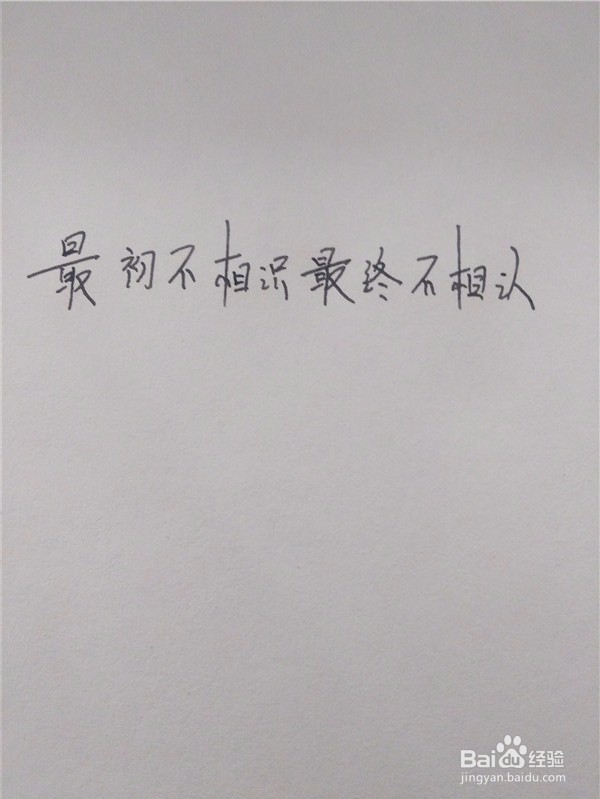 最初不相识最终不相认
Baidu经验
jingyan.baidu.com